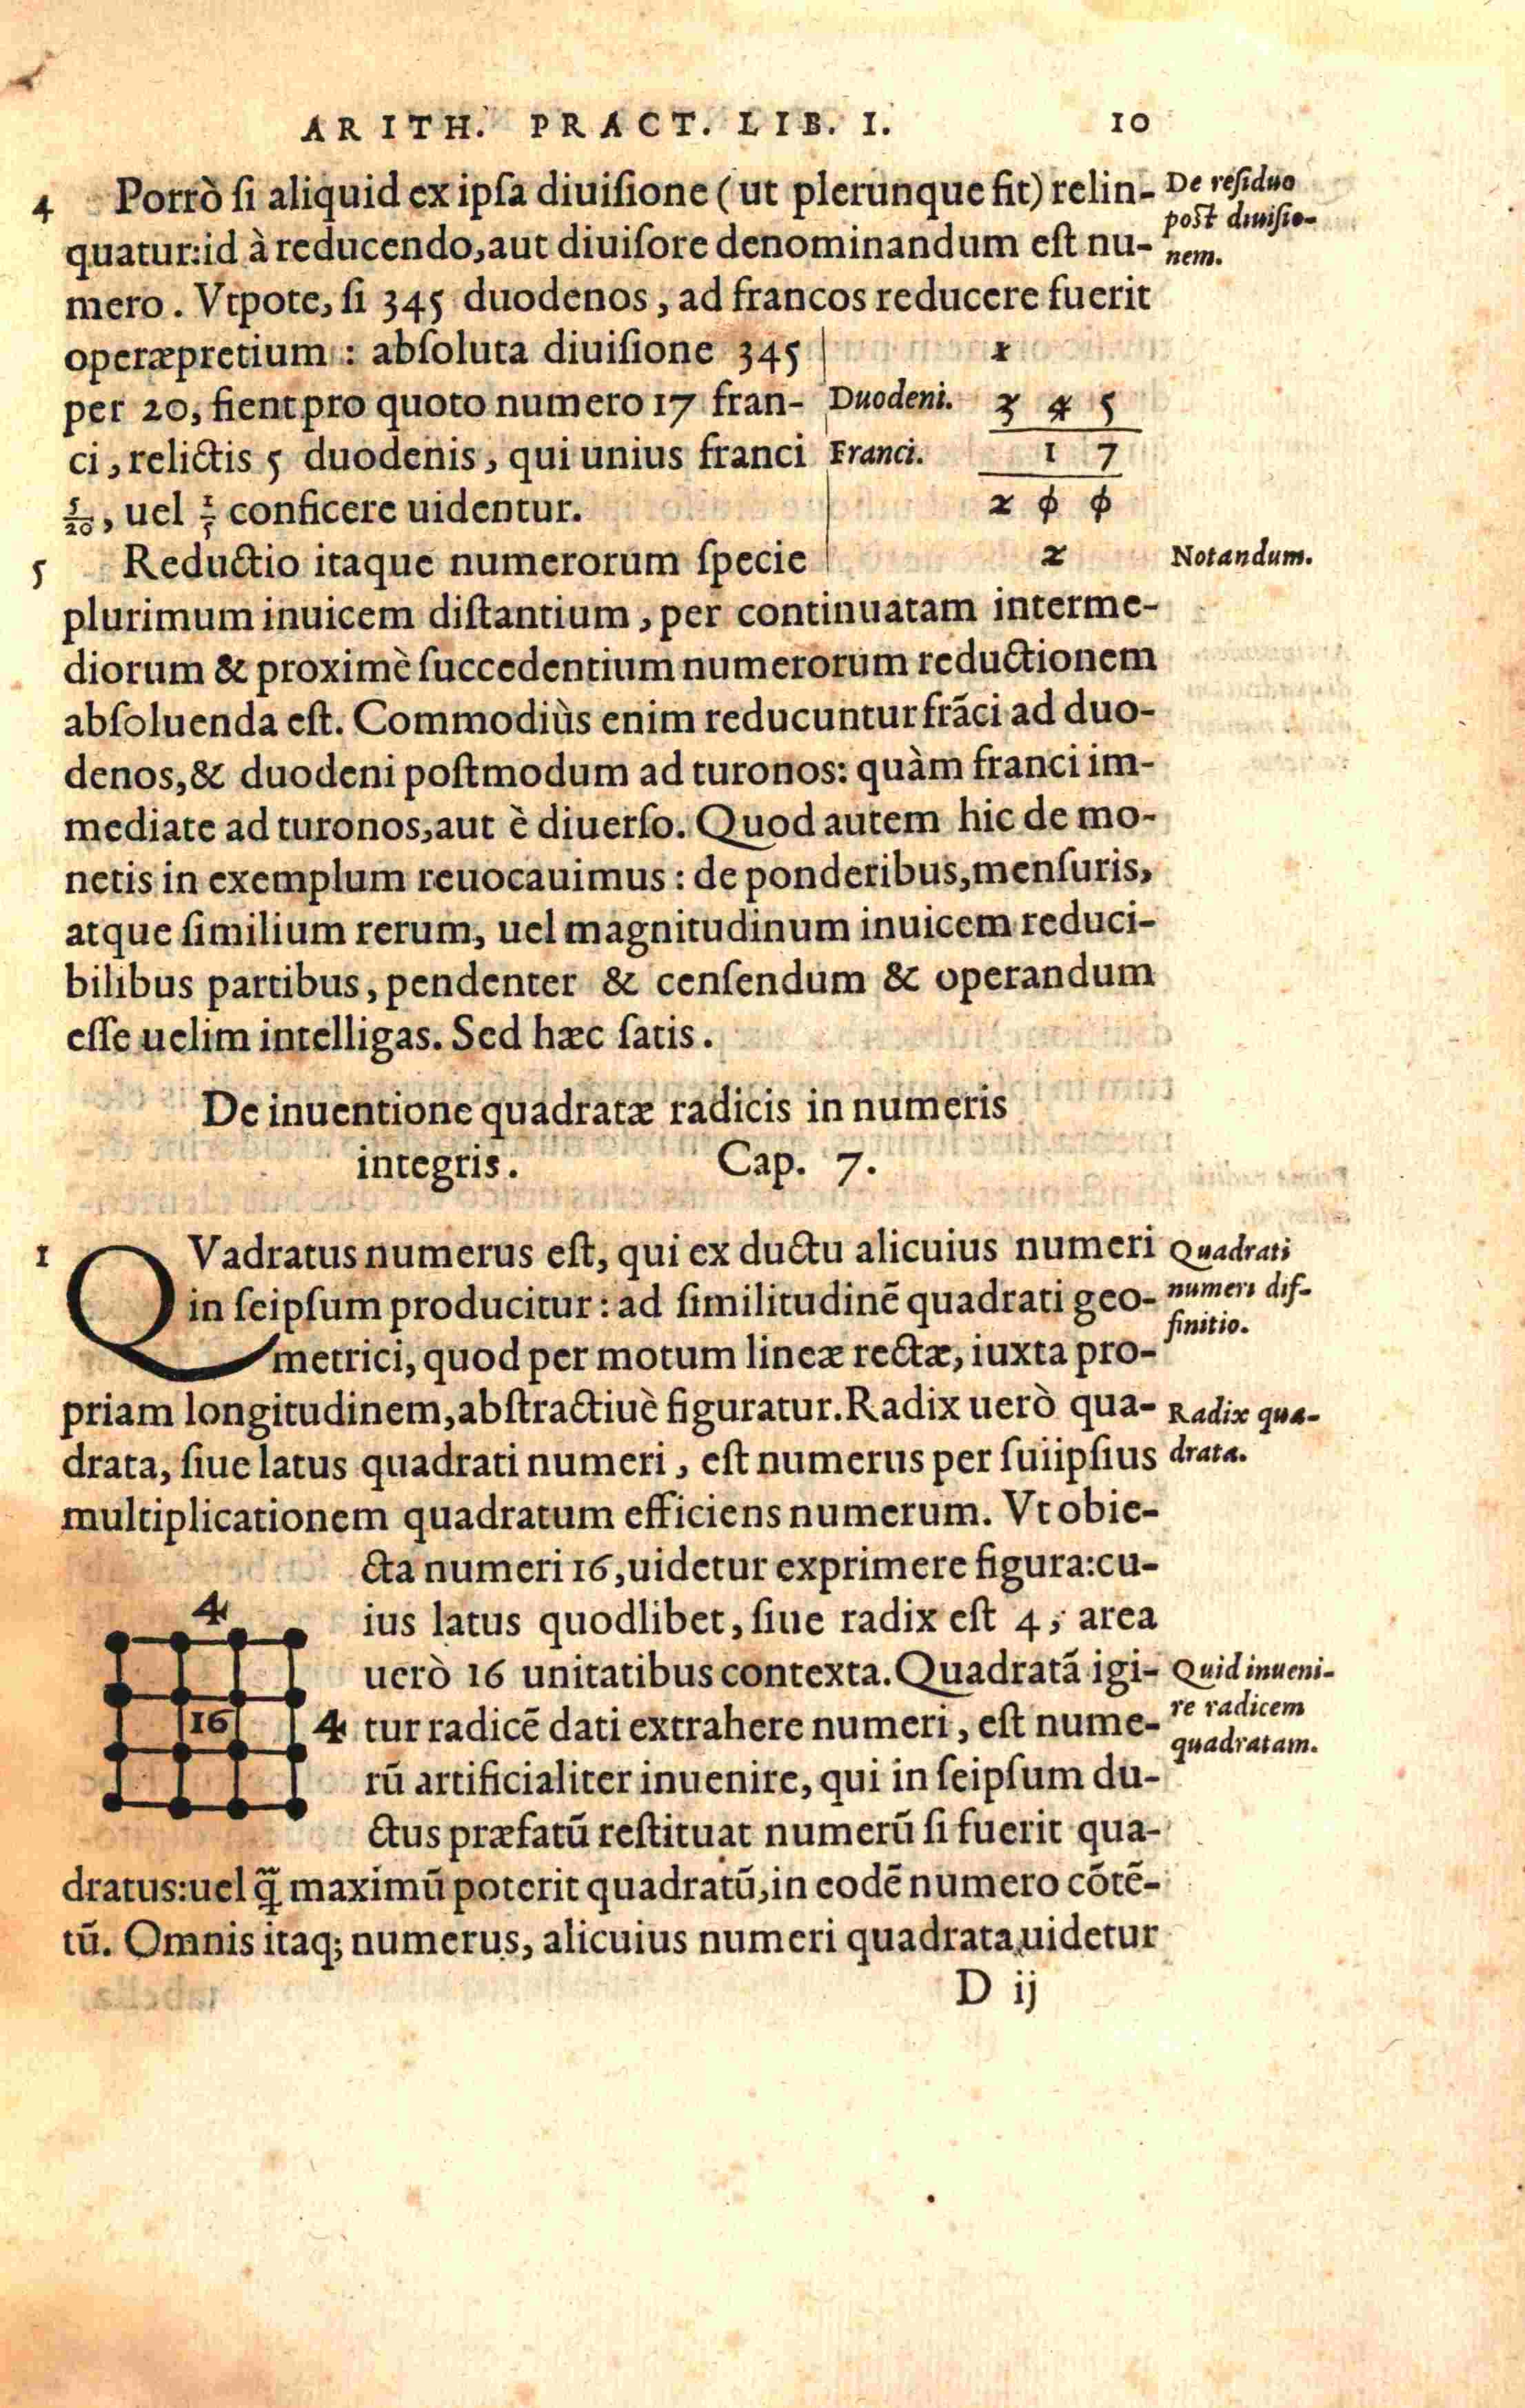 ARITH. PRACT. LIB. I. 10
4 Porrò ſi aliquid ex ipſa diuiſione (ut plerunque fit) relin-
De reſiduo
poſt diuiſio-
nem.
quatur:id à reducendo,aut diuiſore denominandum eſt nu-
mero. Vtpote, ſi 345 duodenos, ad francos reducere fuerit
operæpretium : abſoluta diuiſione 345
per 20, fient pro quoto numero 17 fran-
ci, relictis 5 duodenis, qui unius franci
5/20, uel 1/5 conficere uidentur.
1
Duodeni. 3 4 5
Franci. 1 7
2 0 0
2
5 Reductio itaque numerorum ſpecie
Notandum.
plurimum inuicem diſtantium, per continuatam interme-
diorum & proximè ſuccedentium numerorum reductionem
abſoluenda eſt. Commodiùs enim reducuntur frãci ad duo-
denos,& duodeni poſtmodum ad turonos: quàm franci im-
mediate ad turonos,aut è diuerſo. Quod autem hic de mo-
netis in exemplum reuocauimus : de ponderibus,menſuris,
atque ſimilium rerum, uel magnitudinum inuicem reduci-
bilibus partibus, pendenter & cenſendum & operandum
eſſe uelim intelligas. Sed hæc ſatis.
De inuentione quadratæ radicis in numeris
integris. Cap. 7.
1 QVadratus numerus eſt, qui ex ductu alicuius numeri
Quadrati
numeri dif-
finitio.
in ſeipſum producitur : ad ſimilitudinẽ quadrati geo-
metrici, quod per motum lineæ rectæ, iuxta pro-
priam longitudinem,abſtractiuè figuratur. Radix uerò qua-
Radix qua-
drata.
drata, ſiue latus quadrati numeri, eſt numerus per ſuiipſius
multiplicationem quadratum efficiens numerum. Vt obie-
cta numeri 16,uidetur exprimere figura:cu-
ius latus quodlibet, ſiue radix eſt 4, area
uerò 16 unitatibus contexta. Quadratã igi-
Quid inueni-
re radicem
quadratam.
tur radicẽ dati extrahere numeri, eſt nume-
rũ artificialiter inuenire, qui in ſeipſum du-
ctus præfatũ reſtituat numerũ ſi fuerit qua-
4
16
4
dratus:uel q̃ maximũ poterit quadratũ,in eodẽ numero cõtẽ-
tũ. Omnis itaq; numerus, alicuius numeri quadrata uidetur
D ij